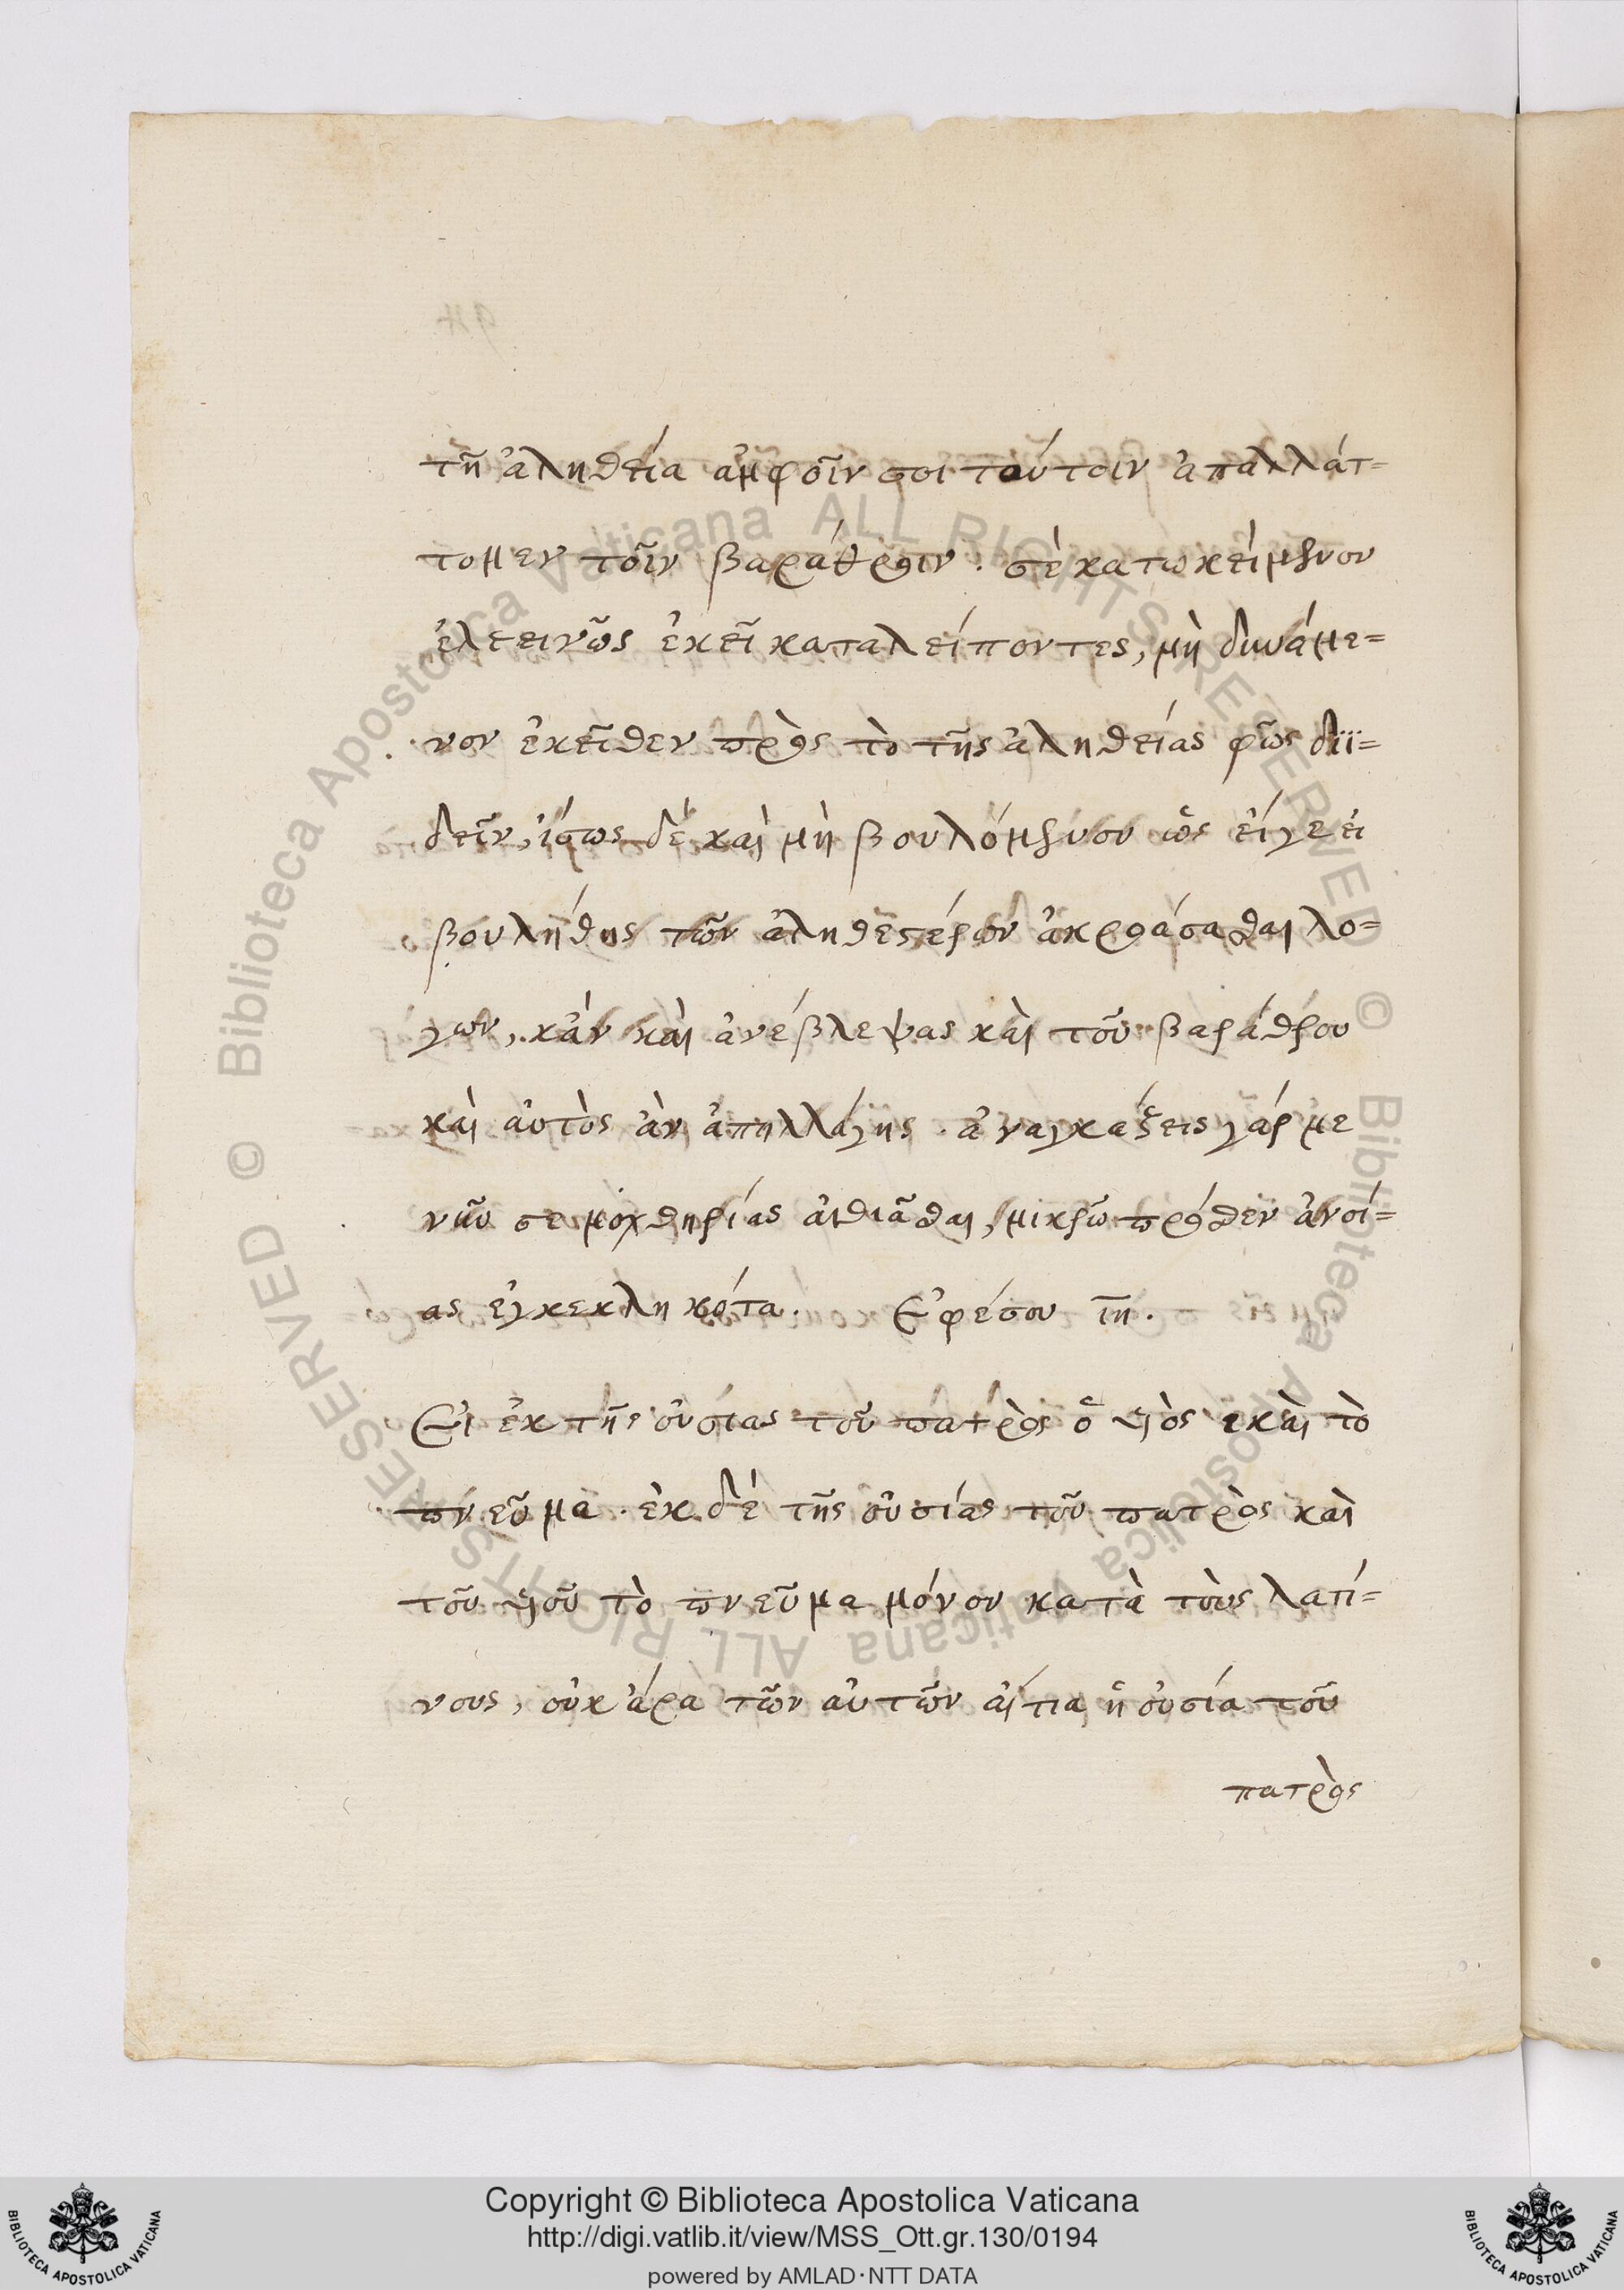 τῆ ἀληθεία ἀμφοῖν σοι τούτοιν ἀπαλλάτ=
τομεν τοῖν βαράθροιν· σὲ κατωκείμενον
ἐλεεινῶς ἐκεῖ καταλείποντες, μὴ δυνάμε=
νον ἐκεῖθεν πρὸς τὸ τῆς ἀληθείας φῶς διϊ=
δεῖν, ἴσως δὲ καὶ μὴ βουλόμενον ὡς εἴγε εἰ
βουλήθης τῶν ἀληθεστέρων ἀκροάσασθαι λο=
γων, κἂν καὶ ἀνέβλεψας καὶ τοῦ βαράθρου
καὶ αὐτὸς ἂν ἀπηλλάγης· ἀναγκάζεις γάρ με
νῦν σε μοχθηρίας αἰτιᾶσθαι, μικρῶ πρόσθεν ἀνοί=
ας ἐγκεκληκότα. Ἐφέσου ιη.
Εἰ ἐκ τῆς οὐσίας τοῦ πατρὸς ὁ υἱὸς καὶ τὸ
πνεῦμα· ἐκ δὲ τῆς οὐσίας τοῦ πατρὸς καὶ
τοῦ υἱοῦ τὸ πνεῦμα μόνον κατὰ τοὺς λατί=
νους, οὐκ ἄρα τῶν αὐτῶν αἰτία ἡ οὐσία τοῦ
πατρὸς
Copyright © Biblioteca Apostolica Vaticana
http://digi.vatlib.it/view/MSS_Ott.gr.130/0194
powered by AMLAD·NTT DATA
BIBLIOTECA APOSTOLICA VATICANA
BIBLIOTECA APOSTOLICA VATICANA
© Biblioteca Apostolica Vaticana ALL RIGHTS RESERVED
© Biblioteca Apostolica Vaticana ALL RIGHTS RESERVED